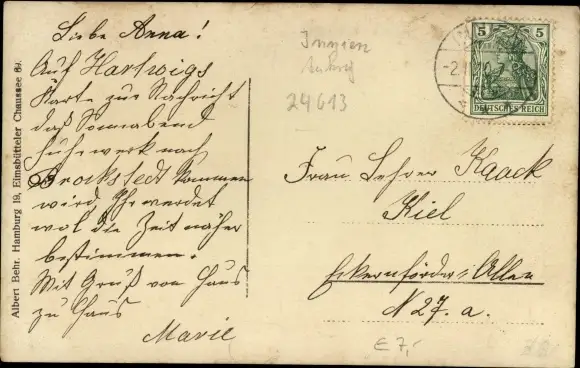 Liebe Anna!
Auf Hartwigs
Karte zur Nachricht
daß Sonnabend
Fuhrwerk nach
Brockstedt kommen
wird Ihr werdet
wol die Zeit näher
bestimmen.
Mit Gruß von Haus
zu Haus
Marie
Albert Behr. Hamburg 19, Eimsbütteler Chaussee 69.
Innien
24613
5 5
DEUTSCHES REICH
Frau Lehrer Kaack
Kiel
Eckernförder Allee
N 27. a.
E 7,-